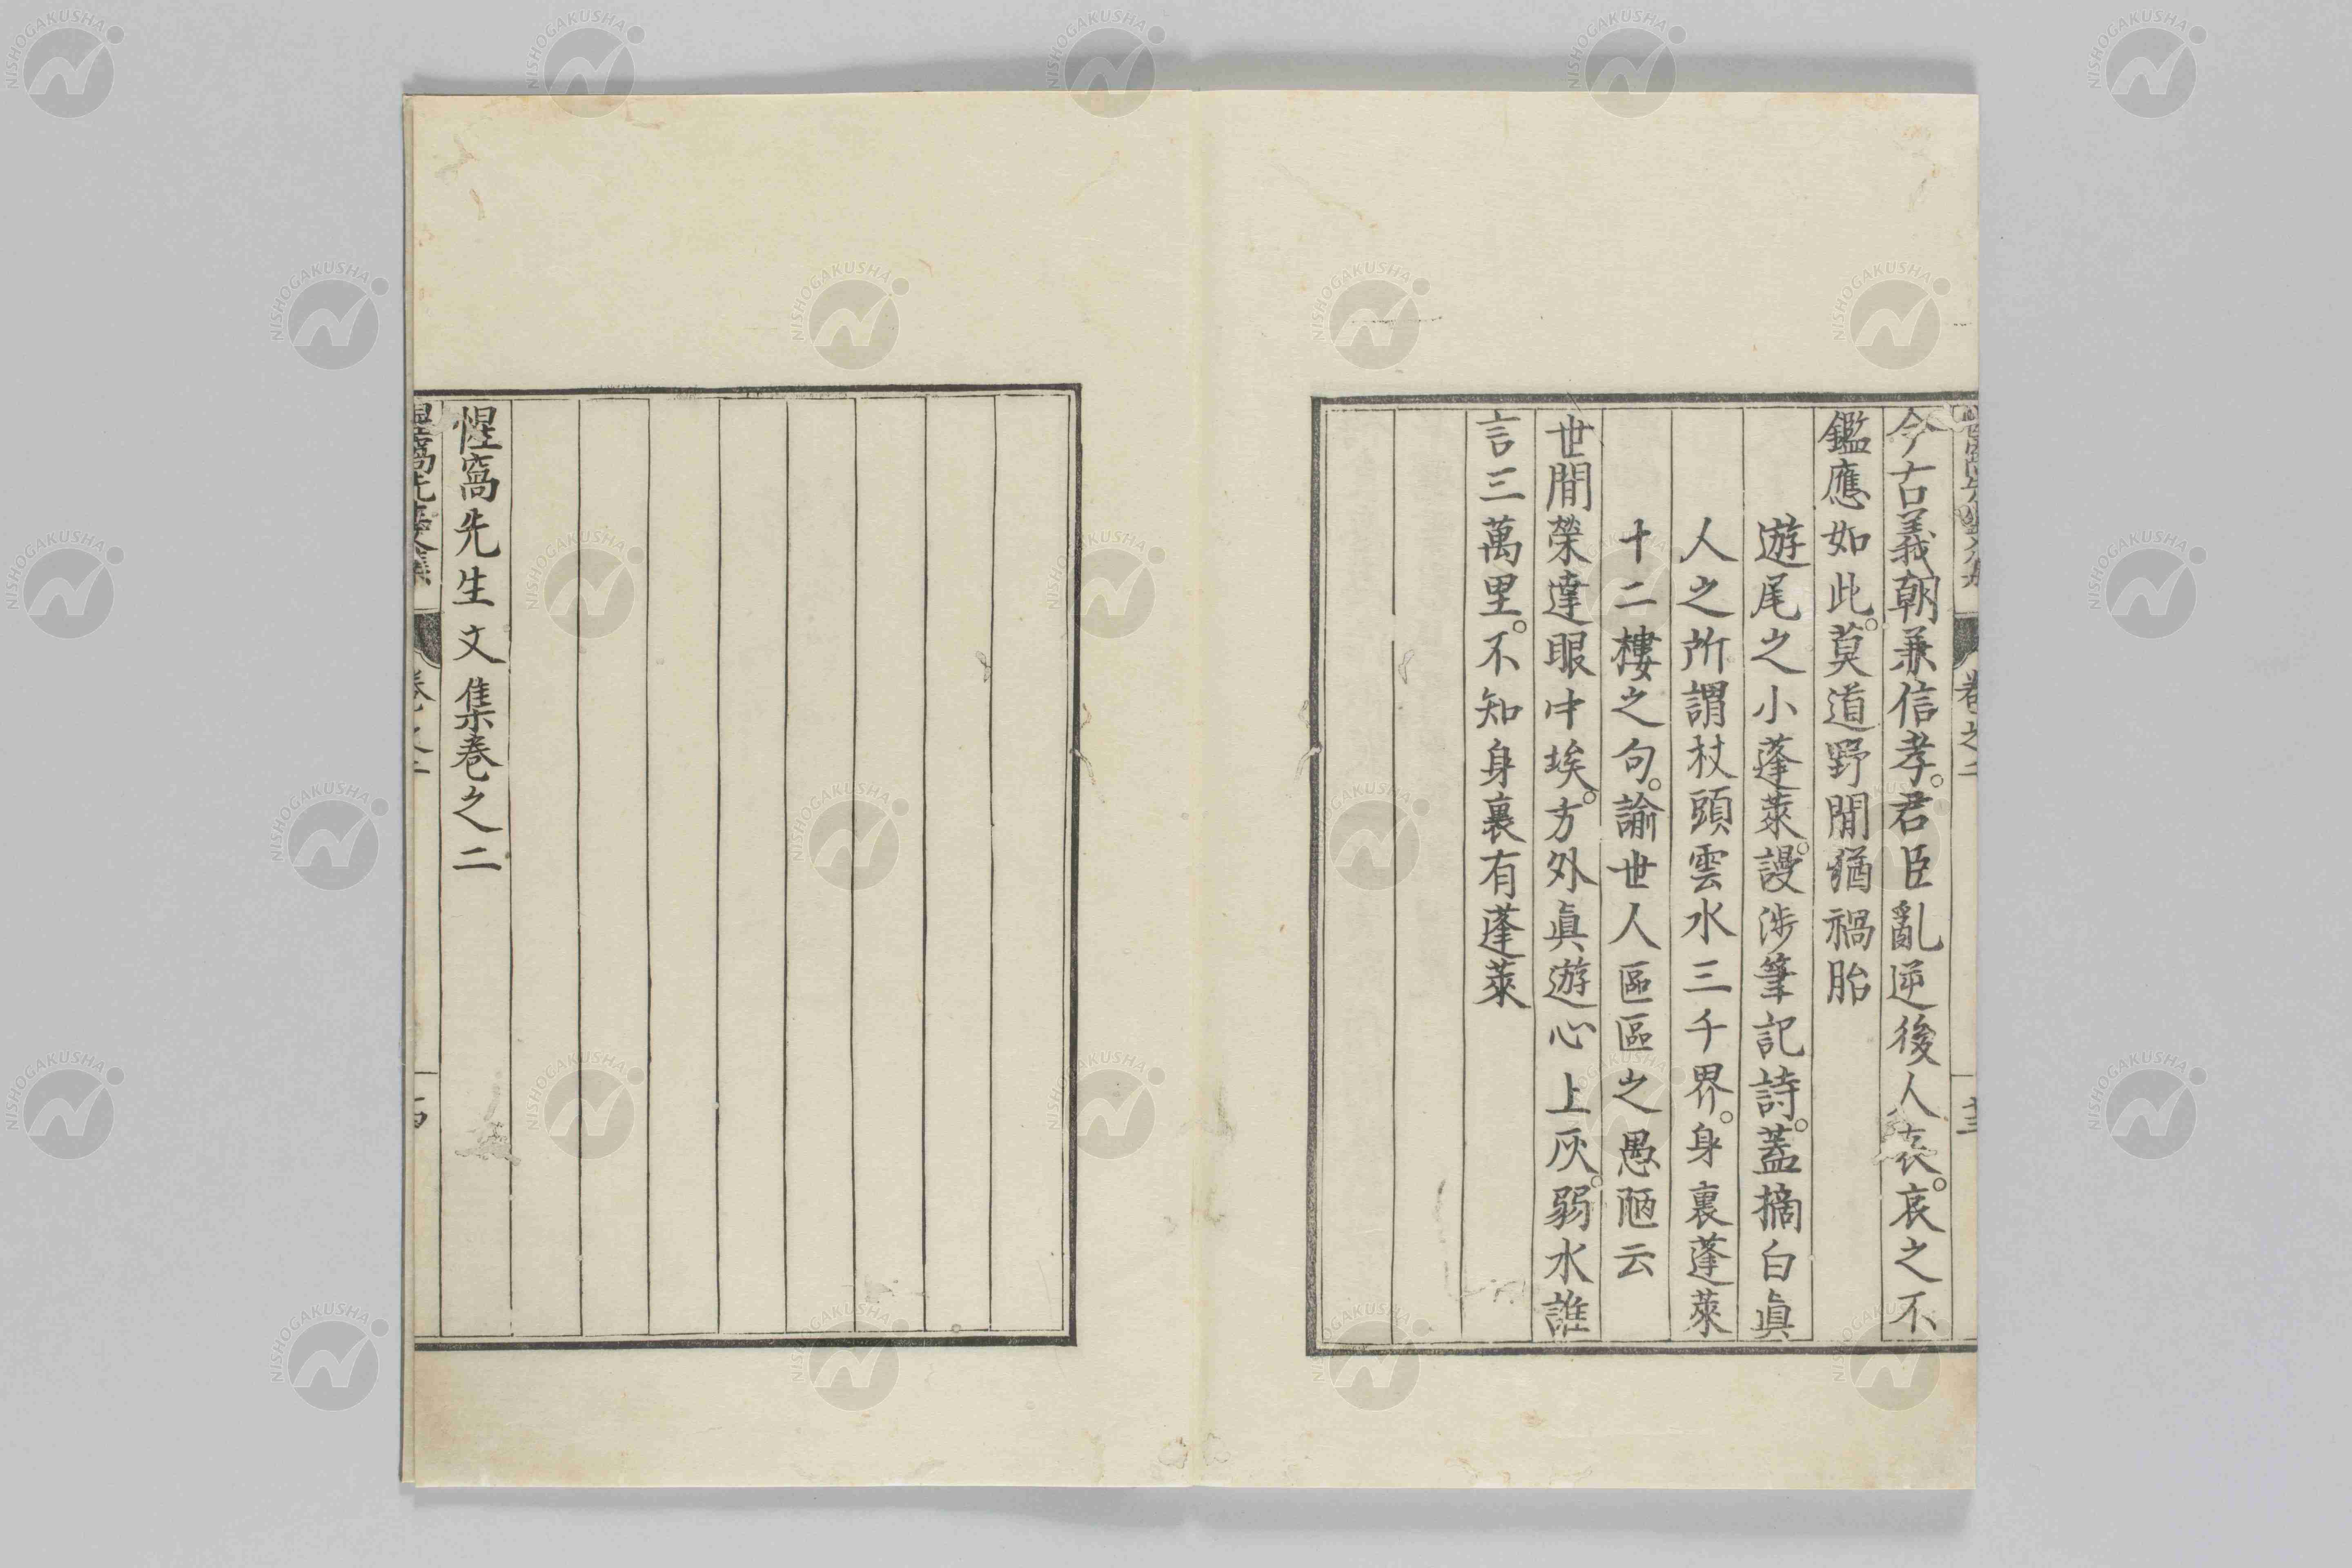 今古義朝兼信孝。君臣亂逆後人哀。哀之不
鑑應如此。莫道野間猶禍胎
遊尾之小蓬萊。謾涉筆記詩。蓋摘白眞
人之所謂杖頭雲水三千界。身裏蓬萊
十二樓之句。諭世人區區之愚陋云
世間榮達眼中埃。方外眞遊心上灰。弱水誰
言三萬里。不知身裏有蓬萊
惺窩先生文集卷之二
卷之二
NISHOGAKUSHA